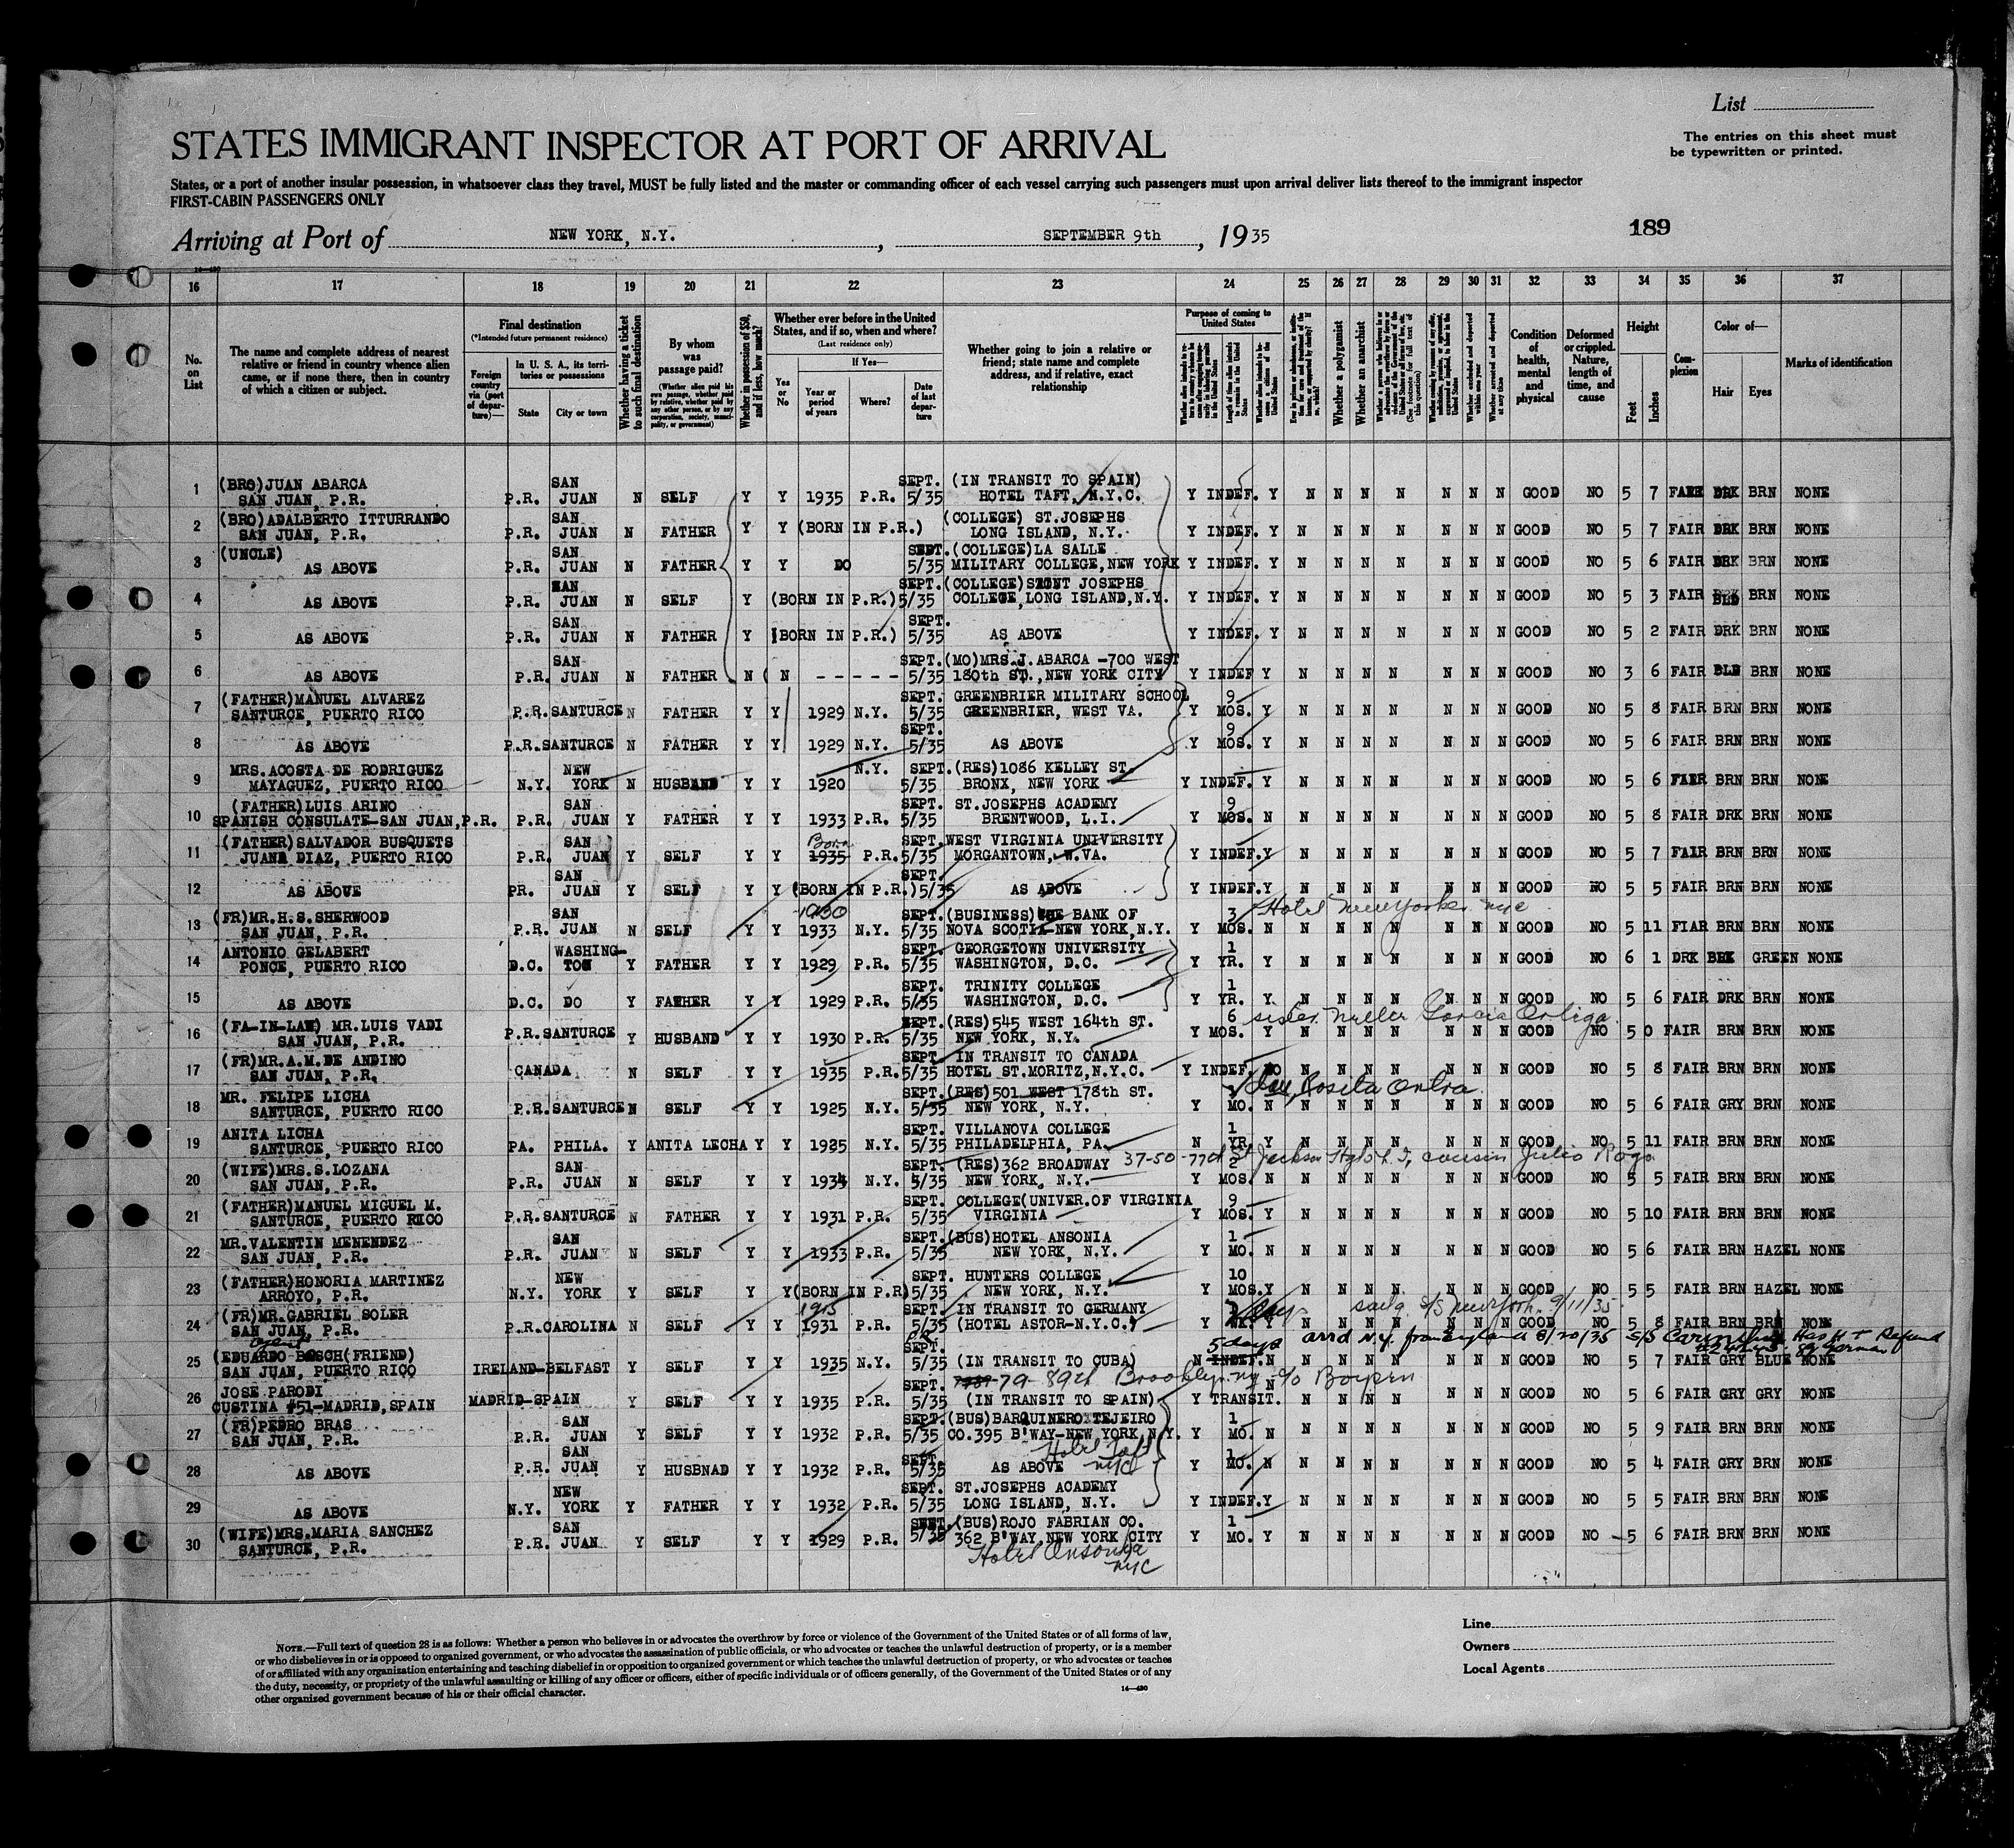 List
The entries on this sheet must
be typewritten or printed.
STATES IMMIGRANT INSPECTOR AT PORT OF ARRIVAL
States, or a port of another insular possession, in whatsoever class they travel, MUST be fully listed and the master or commanding officer of each vessel carrying such passengers must upon arrival deliver lists thereof to the immigrant inspector
FIRST-CABIN PASSENGERS ONLY
Arriving at Port of NEW YORK, N.Y. , SEPTEMBER 9th , 1935
189
16 17 18 19 20 21 22 23 24 25 26 27 28 29 30 31 32 33 34 35 36 37
No. on List
The name and complete address of nearest relative or friend in country whence alien came, or if none there, then in country of which a citizen or subject.
Final destination
(*Intended future permanent residence)
Foreign country via (port of departure)—
In U. S. A., its territories or possessions
State
City or town
Whether having a ticket to such final destination
By whom was passage paid?
(Whether alien paid his own passage, whether paid by relative, whether paid by any other person, or by any corporation, society, municipality, or government)
Whether in possession of $50, and if less, how much?
Whether ever before in the United States, and if so, when and where?
(Last residence only)
Yes or No
If Yes—
Year or period of years
Where?
Date of last departure
Whether going to join a relative or friend; state name and complete address, and if relative, exact relationship
Purpose of coming to United States
Whether a polygamist
Whether an anarchist
Condition of health, mental and physical
Deformed or crippled. Nature, length of time, and cause
Height
Feet
Inches
Complexion
Color of—
Hair
Eyes
Marks of identification
1 (BRO)JUAN ABARCA SAN JUAN, P.R. P.R. SAN JUAN N SELF Y Y 1935 P.R. SEPT. 5/35 (IN TRANSIT TO SPAIN) HOTEL TAFT, N.Y.C. Y INDEF. Y N N N N N N N GOOD NO 5 7 FAIR DRK BRN NONE
2 (BRO)ADALBERTO ITTURRANDO SAN JUAN, P.R. P.R. SAN JUAN N FATHER Y Y (BORN IN P.R.) (COLLEGE) ST.JOSEPHS LONG ISLAND, N.Y. Y INDEF. Y N N N N N N N GOOD NO 5 7 FAIR DRK BRN NONE
3 (UNCLE) AS ABOVE P.R. SAN JUAN N FATHER Y Y DO SEPT. 5/35 (COLLEGE)LA SALLE MILITARY COLLEGE,NEW YORK Y INDEF. Y N N N N N N N GOOD NO 5 6 FAIR DRK BRN NONE
4 AS ABOVE P.R. SAN JUAN N SELF Y (BORN IN P.R.) SEPT. 5/35 (COLLEGE)SAINT JOSEPHS COLLEGE,LONG ISLAND,N.Y. Y INDEF. Y N N N N N N N GOOD NO 5 3 FAIR BLD BRN NONE
5 AS ABOVE P.R. SAN JUAN N FATHER Y (BORN IN P.R.) SEPT. 5/35 AS ABOVE Y INDEF. Y N N N N N N N GOOD NO 5 2 FAIR DRK BRN NONE
6 AS ABOVE P.R. SAN JUAN N FATHER N N - - - - - SEPT. 5/35 (MO)MRS.J.ABARCA -700 WEST 180th ST.,NEW YORK CITY Y INDEF Y N N N N N N N GOOD NO 3 6 FAIR BLD BRN NONE
7 (FATHER)MANUEL ALVAREZ SANTURCE, PUERTO RICO P.R. SANTURCE N FATHER Y Y 1929 N.Y. SEPT. 5/35 GREENBRIER MILITARY SCHOOL GREENBRIER, WEST VA. Y 9 MOS. Y N N N N N N N GOOD NO 5 8 FAIR BRN BRN NONE
8 AS ABOVE P.R. SANTURCE N FATHER Y Y 1929 N.Y. SEPT. 5/35 AS ABOVE Y 9 MOS. Y N N N N N N N GOOD NO 5 6 FAIR BRN BRN NONE
9 MRS.ACOSTA DE RODRIGUEZ MAYAGUEZ, PUERTO RICO N.Y. NEW YORK N HUSBAND Y Y 1920 N.Y. SEPT. 5/35 (RES)1086 KELLEY ST. BRONX, NEW YORK Y INDEF. Y N N N N N N N GOOD NO 5 6 FAIR BRN BRN NONE
10 (FATHER)LUIS ARINO SPANISH CONSULATE-SAN JUAN,P.R. P.R. SAN JUAN Y FATHER Y Y 1933 P.R. SEPT. 5/35 ST.JOSEPHS ACADEMY BRENTWOOD, L.I. Y 9 MOS. N N N N N N N N GOOD NO 5 8 FAIR DRK BRN NONE
11 (FATHER)SALVADOR BUSQUETS JUANA DIAZ, PUERTO RICO P.R. SAN JUAN Y SELF Y Y Born 1935 P.R. SEPT. 5/35 WEST VIRGINIA UNIVERSITY MORGANTOWN, W.VA. Y INDEF. Y N N N N N N N GOOD NO 5 7 FAIR BRN BRN NONE
12 AS ABOVE PR. SAN JUAN Y SELF Y Y (BORN IN P.R.) SEPT. 5/35 AS ABOVE Y INDEF. Y N N N N N N N GOOD NO 5 5 FAIR BRN BRN NONE
13 (FR)MR.H.S.SHERWOOD SAN JUAN, P.R. P.R. SAN JUAN N SELF Y Y 1930 1933 N.Y. SEPT. 5/35 (BUSINESS)THE BANK OF NOVA SCOTIA-NEW YORK,N.Y. Y 3 MOS. N N N N N N N N GOOD NO 5 11 FIAR BRN BRN NONE
Hotel New Yorker nyc
14 ANTONIO GELABERT PONCE, PUERTO RICO D.C. WASHINGTON Y FATHER Y Y 1929 P.R. SEPT. 5/35 GEORGETOWN UNIVERSITY WASHINGTON, D.C. Y 1 YR. Y N N N N N N N GOOD NO 6 1 DRK BRK GREEN NONE
15 AS ABOVE D.C. DO Y FATHER Y Y 1929 P.R. SEPT. 5/35 TRINITY COLLEGE WASHINGTON, D.C. Y 1 YR. Y N N N N N N N GOOD NO 5 6 FAIR DRK BRN NONE
16 (FA-IN-LAW) MR.LUIS VADI SAN JUAN, P.R. P.R. SANTURCE Y HUSBAND Y Y 1930 P.R. SEPT. 5/35 (RES)545 WEST 164th ST. NEW YORK, N.Y. Y 6 MOS. Y N N N N N N N GOOD NO 5 0 FAIR BRN BRN NONE
sister Garcia
17 (FR)MR.A.M.DE ANDINO SAN JUAN, P.R. CANADA N SELF Y Y 1935 P.R. SEPT. 5/35 IN TRANSIT TO CANADA HOTEL ST.MORITZ,N.Y.C. Y INDEF. NO N N N N N N N GOOD NO 5 8 FAIR BRN BRN NONE
18 MR. FELIPE LICHA SANTURCE, PUERTO RICO P.R. SANTURCE N SELF Y Y 1925 N.Y. SEPT. 5/35 (RES)501 WEST 178th ST. NEW YORK, N.Y. Y MO. N N N N N N N N GOOD NO 5 6 FAIR GRY BRN NONE
Rosita
19 ANITA LICHA SANTURCE, PUERTO RICO PA. PHILA. Y ANITA LECHA Y Y 1925 N.Y. SEPT. 5/35 VILLANOVA COLLEGE PHILADELPHIA, PA. N 1 YR. Y N N N N N N N GOOD NO 5 11 FAIR BRN BRN NONE
20 (WIFE)MRS.S.LOZANA SAN JUAN, P.R. P.R. SAN JUAN N SELF Y Y 1934 N.Y. SEPT. 5/35 (RES)362 BROADWAY NEW YORK, N.Y. Y 2 MOS. N N N N N N N N GOOD NO 5 5 FAIR BRN BRN NONE
37-50-77th St Jackson Hgts L.I, cousin Julio
21 (FATHER)MANUEL MIGUEL M. SANTURCE, PUERTO RICO P.R. SANTURCE N FATHER Y Y 1931 P.R. SEPT. 5/35 COLLEGE(UNIVER.OF VIRGINIA VIRGINIA Y 9 MOS. Y N N N N N N N GOOD NO 5 10 FAIR BRN BRN NONE
22 MR.VALENTIN MENENDEZ SAN JUAN, P.R. P.R. SAN JUAN N SELF Y Y 1933 P.R. SEPT. 5/35 (BUS)HOTEL ANSONIA NEW YORK, N.Y. Y 1 MO. N N N N N N N N GOOD NO 5 6 FAIR BRN HAZEL NONE
23 (FATHER)HONORIA MARTINEZ ARROYO, P.R. N.Y. NEW YORK Y SELF Y Y (BORN IN P.R) SEPT. 5/35 HUNTERS COLLEGE NEW YORK, N.Y. Y 10 MOS. Y N N N N N N N GOOD NO 5 5 FAIR BRN HAZEL NONE
24 (FR)MR.GABRIEL SOLER SAN JUAN, P.R. P.R. CAROLINA N SELF Y Y 1915 1931 P.R. SEPT. 5/35 IN TRANSIT TO GERMANY (HOTEL ASTOR-N.Y.C.) Y WK. Y N N N N N N N GOOD NO 5 8 FAIR BRN BRN NONE
S/S New York 9/11/35
25 (EDUARDO BOSCH(FRIEND) SAN JUAN, PUERTO RICO IRELAND-BELFAST Y SELF Y Y 1935 N.Y. SEPT. 5/35 (IN TRANSIT TO CUBA) N 5 days INDEF. N N N N N N N N GOOD NO 5 7 FAIR GRY BLUE NONE
arrd N.Y. from England 8/20/35 S/S
26 JOSE PARODI CUSTINA #51-MADRID,SPAIN MADRID-SPAIN Y SELF Y Y 1935 P.R. SEPT. 5/35 (IN TRANSIT TO SPAIN) Y TRANSIT. N N N N N N N N GOOD NO 5 6 FAIR GRY GRY NONE
79-89th Brooklyn ny c/o
27 (FR)PEDRO BRAS SAN JUAN, P.R. P.R. SAN JUAN Y SELF Y Y 1932 P.R. SEPT. 5/35 (BUS)BARQUINERO TEJEIRO CO.395 B'WAY-NEW YORK N.Y. Y 1 MO. N N N N N N N N GOOD NO 5 9 FAIR BRN BRN NONE
Hotel Taft nyc
28 AS ABOVE P.R. SAN JUAN Y HUSBNAD Y Y 1932 P.R. SEPT. 5/35 AS ABOVE Y 1 MO. N N N N N N N N GOOD NO 5 4 FAIR GRY BRN NONE
29 AS ABOVE N.Y. NEW YORK Y FATHER Y Y 1932 P.R. SEPT. 5/35 ST.JOSEPHS ACADEMY LONG ISLAND, N.Y. Y INDEF. Y N N N N N N N GOOD NO 5 5 FAIR BRN BRN NONE
30 (WIFE)MRS.MARIA SANCHEZ SANTURCE, P.R. P.R. SAN JUAN Y SELF Y Y 1929 P.R. SEPT. 5/35 (BUS)ROJO FABRIAN CO. 362 B'WAY,NEW YORK CITY Y 1 MO. Y N N N N N N N GOOD NO 5 6 FAIR BRN BRN NONE
Hotel Ansonia nyc
NOTE.—Full text of question 28 is as follows: Whether a person who believes in or advocates the overthrow by force or violence of the Government of the United States or of all forms of law,
or who disbelieves in or is opposed to organized government, or who advocates the assassination of public officials, or who advocates or teaches the unlawful destruction of property, or is a member
of or affiliated with any organization entertaining and teaching disbelief in or opposition to organized government or which teaches the unlawful destruction of property, or who advocates or teaches
the duty, necessity, or propriety of the unlawful assaulting or killing of any officer or officers, either of specific individuals or of officers generally, of the Government of the United States or of any
other organized government because of his or their official character.
Line
Owners
Local Agents